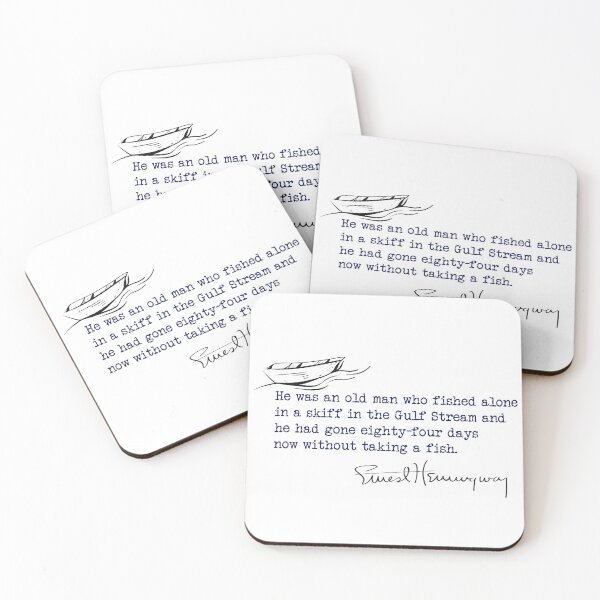 He was an old man who fished
in a skiff in Gulf Stream
he
fish.
He was an old man who fished alone
in a skiff in the Gulf Stream and
he had gone eighty-four days
now without taking a fish.
Ernest Hemingway
He was an old man who fished alone
in a skiff in the Gulf Stream and
he had gone eighty-four days
now without taking a
Ernest
He was an old man who fished alone
in a skiff in the Gulf Stream and
he had gone eighty-four days
now without taking a fish.
Ernest Hemingway